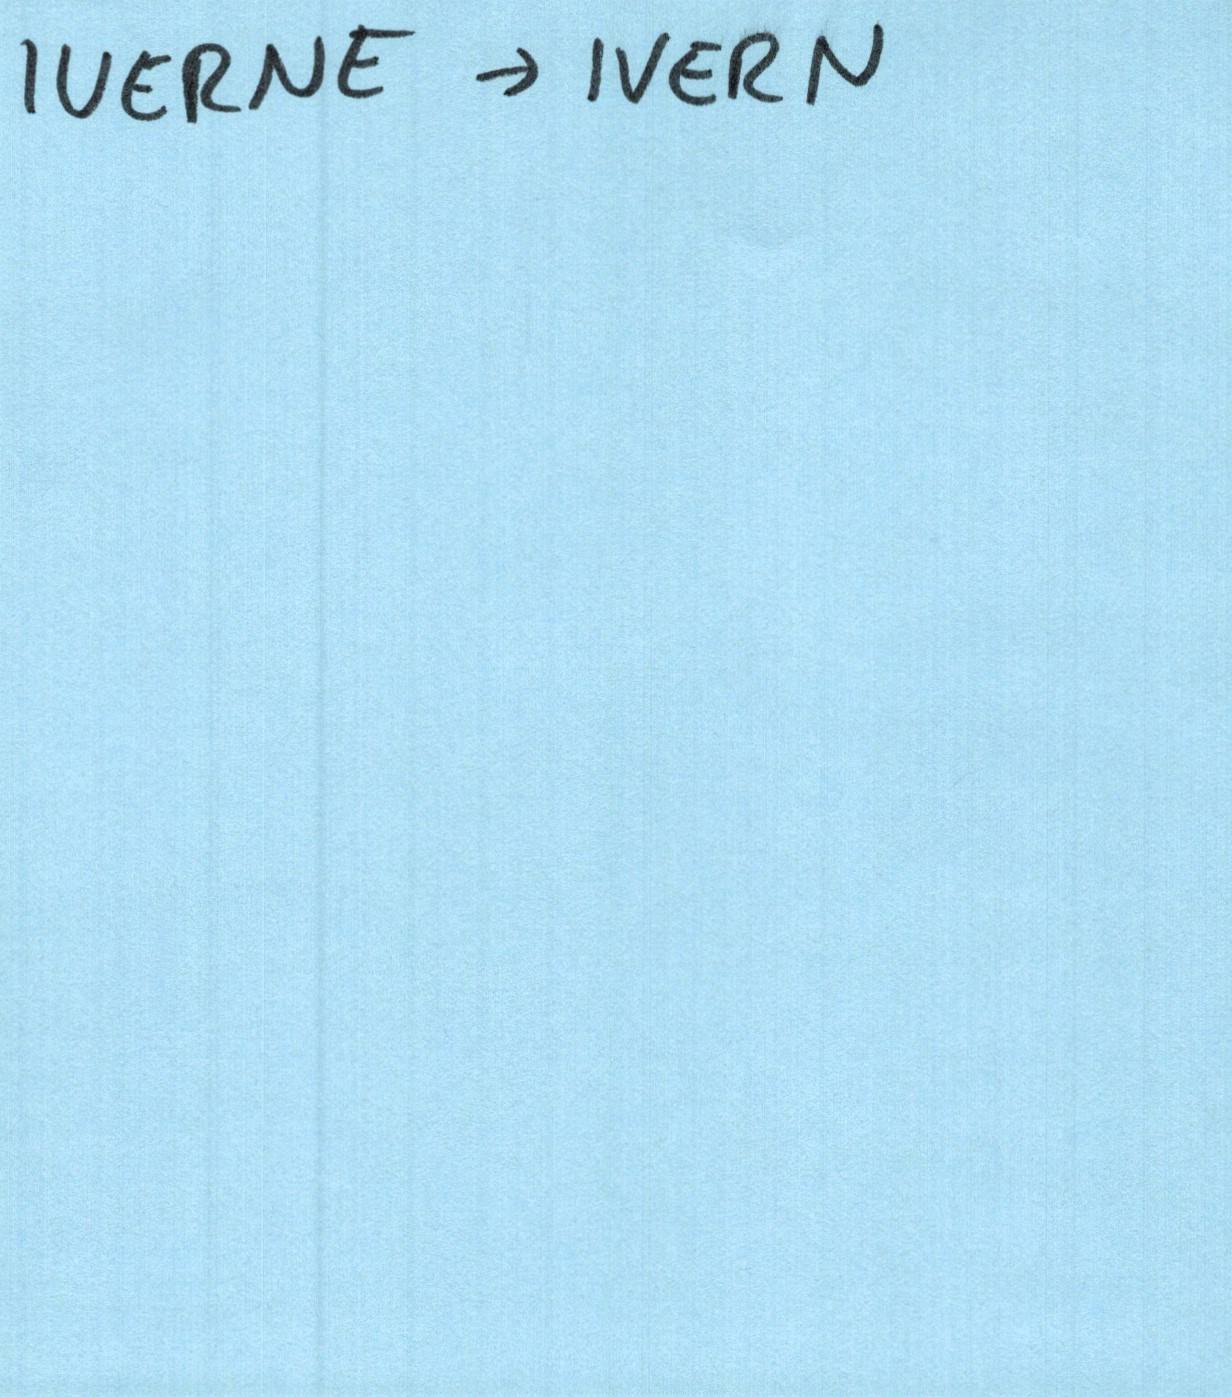 IUERNE → IVERN